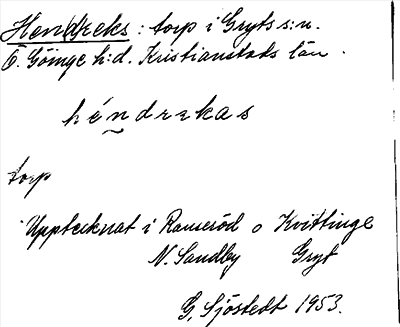 Hendreks: torp i Gryts s:n.
Ö. Göinge h:d. Kristianstads län.
héndrekas
torp
Upptecknat i Rameröd o Kvittinge
N. Sandby Gryt
G. Sjöstedt 1953.